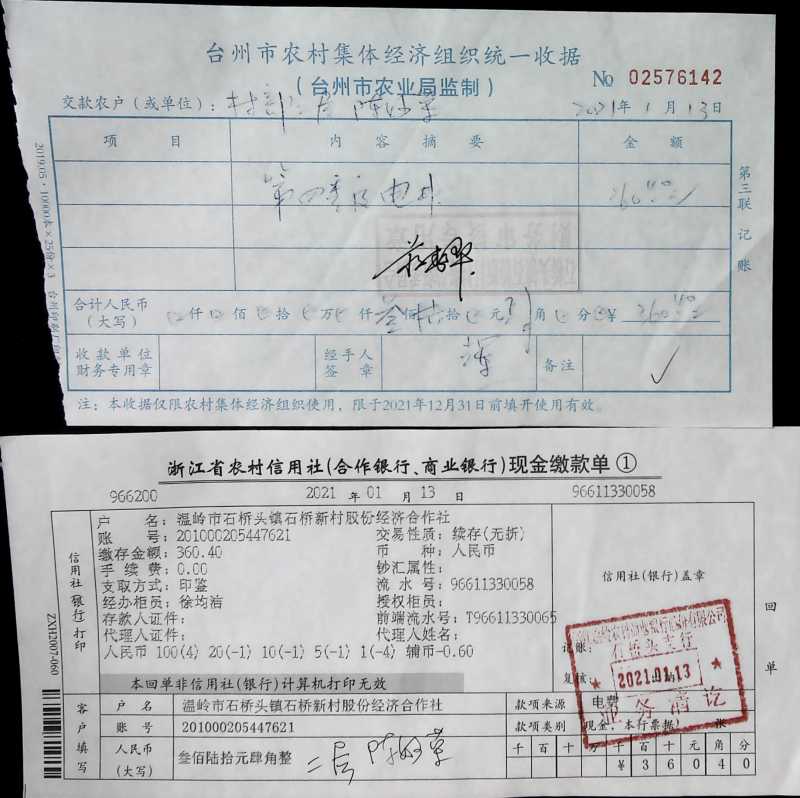 台州市农村集体经济组织统一收据
(台州市农业局监制)
No 02576142
交款农户(或单位):
2021年1月13日
项 目 内 容 摘 要 金 额
第四季度电费
360.40
合计人民币
(大写) 仟 佰 拾 万 仟 叁佰 拾 元 角 分 ¥ 360.40
收款单位
财务专用章
经手人
签 章
备注
注:本收据仅限农村集体经济组织使用,限于2021年12月31日前填开使用有效。
第三联 记账
2019.05·10000本×25份×3
浙江省农村信用社(合作银行、商业银行)现金缴款单①
966200 2021 年 01 月 13 日 96611330058
户 名:温岭市石桥头镇石桥新村股份经济合作社
账 号:201000205447621 交易性质:续存(无折)
缴存金额:360.40 币 种:人民币
手 续 费:0.00 钞汇属性:
支取方式:印鉴 流 水 号:96611330058
经办柜员:徐均浩 授权柜员:
存款人证件: 前端流水号:T96611330065
代理人证件: 代理人姓名:
人民币 100(4) 20(-1) 10(-1) 5(-1) 1(-4) 辅币-0.60
信用社(银行)打印
信用社(银行)盖章
记账:
复核:
石桥头支行
2021.01.13
业务清讫
回单
ZXH2007-060
本回单非信用社(银行)计算机打印无效
客户填写
户 名 温岭市石桥头镇石桥新村股份经济合作社 款项来源 电费
账 号 201000205447621 款项类别 现金,本行票据( 张
人民币
(大写) 叁佰陆拾元肆角整
二店
千 百 十 万 千 百 十 元 角 分
¥ 3 6 0 4 0